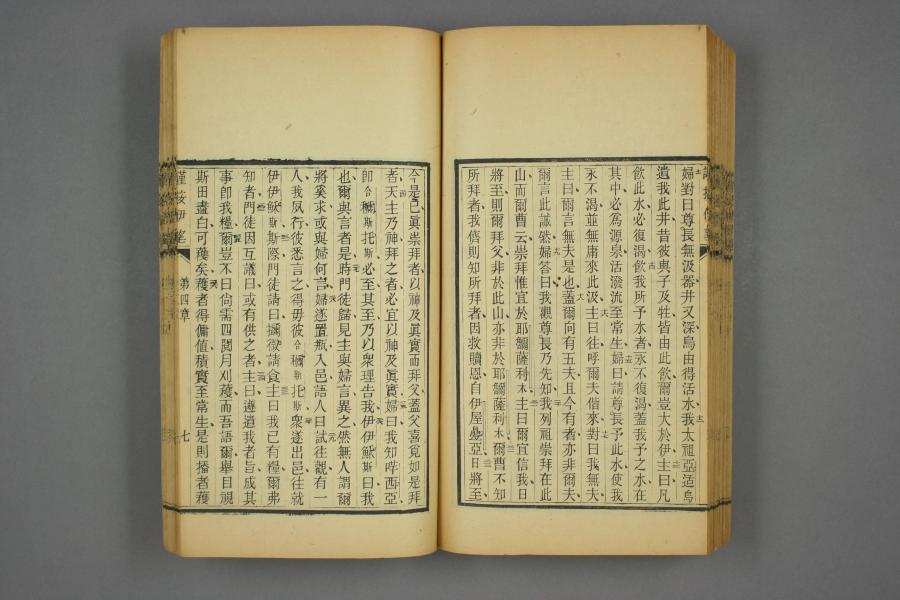 婦對曰尊長無汲器井又深烏由得活水我太祖亞适烏
遺我此井昔彼與子及牲皆由此飲爾豈大於伊主曰凡
飲此水必復渴飲我所予水者永不復渴蓋我予之水在
其中必為源泉活潑流至常生婦曰請尊長予此水使我
永不渴並無庸來此汲主曰往呼爾夫偕來對曰我無夫
主曰爾言無夫是也蓋爾向有五夫且今有者亦非爾夫
爾言此誠然婦答曰我觀尊長乃先知我列祖崇拜在此
山而爾曹云崇拜惟宜於耶𠷓薩利木主曰爾宜信我日
將至則爾拜父非於此山亦非於耶𠷓薩利木爾曹不知
所拜者我儕則知所拜者因救贖恩自伊屋叠亞日將至
今是已眞崇拜者以神及眞實而拜父蓋父喜覓如是拜
者天主乃神拜之者必宜以神及眞實婦曰我知哶西亞
卽合穪斯托斯必至其至乃以衆理告我伊伊穌斯曰我
也爾與言者是時門徒歸見主與婦言異之然無人謂爾
將奚求或與婦何言婦遂置瓶入邑語人曰試往觀有一
人我夙行彼悉言之得毋彼合穪斯托斯衆遂出邑往就
伊伊穌斯斯際門徒請曰攄微請食主曰我已有糧爾弗
知者門徒因互議曰或有供之者主曰遵遣我者旨成其
事卽我糧爾豈不曰尚需四閱月刈穫而吾語爾舉目視
斯田盡白可穫矣穫者得傭值積實至常生是則播者穫
第四章
七